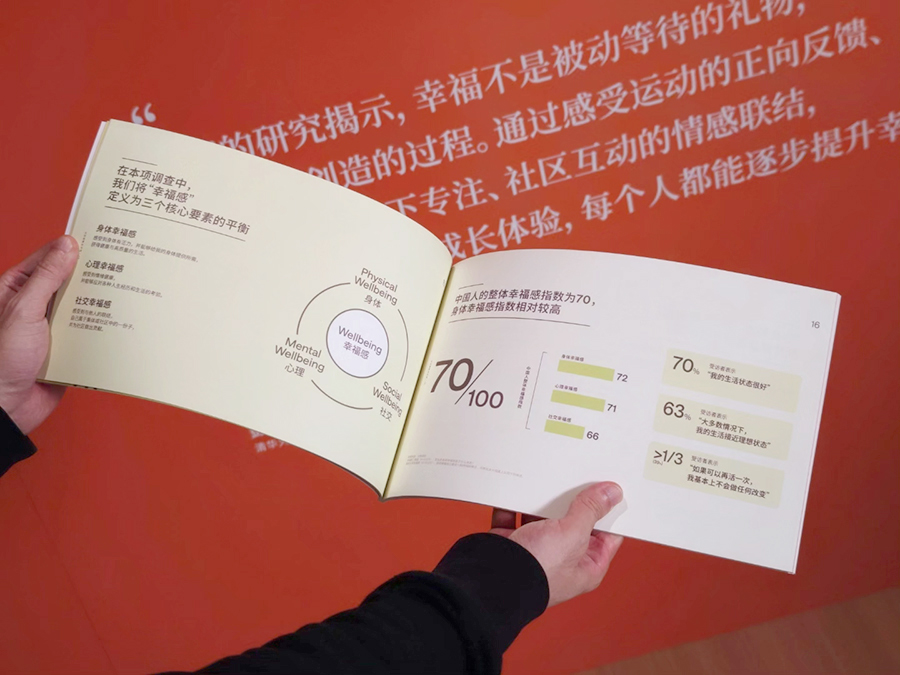 “
的研究揭示，幸福不是被动等待的礼物，
创造的过程。通过感受运动的正向反馈、
下专注、社区互动的情感联结，
成长体验，每个人都能逐步提升幸
清华
在本项调查中，
我们将“幸福感”
定义为三个核心要素的平衡
身体幸福感
心理幸福感
社交幸福感
Physical
Wellbeing
身体
Wellbeing
幸福感
Mental
Wellbeing
心理
Social
Wellbeing
社交
中国人的整体幸福感指数为70，
身体幸福感指数相对较高
16
70/100
中国人整体幸福感指数
身体幸福感
72
心理幸福感
71
社交幸福感
66
70%
受访者表示
“我的生活状态很好”
63%
受访者表示
“大多数情况下，
我的生活接近理想状态”
>1/3
受访者表示
“如果可以再活一次，
我基本上不会做任何改变”